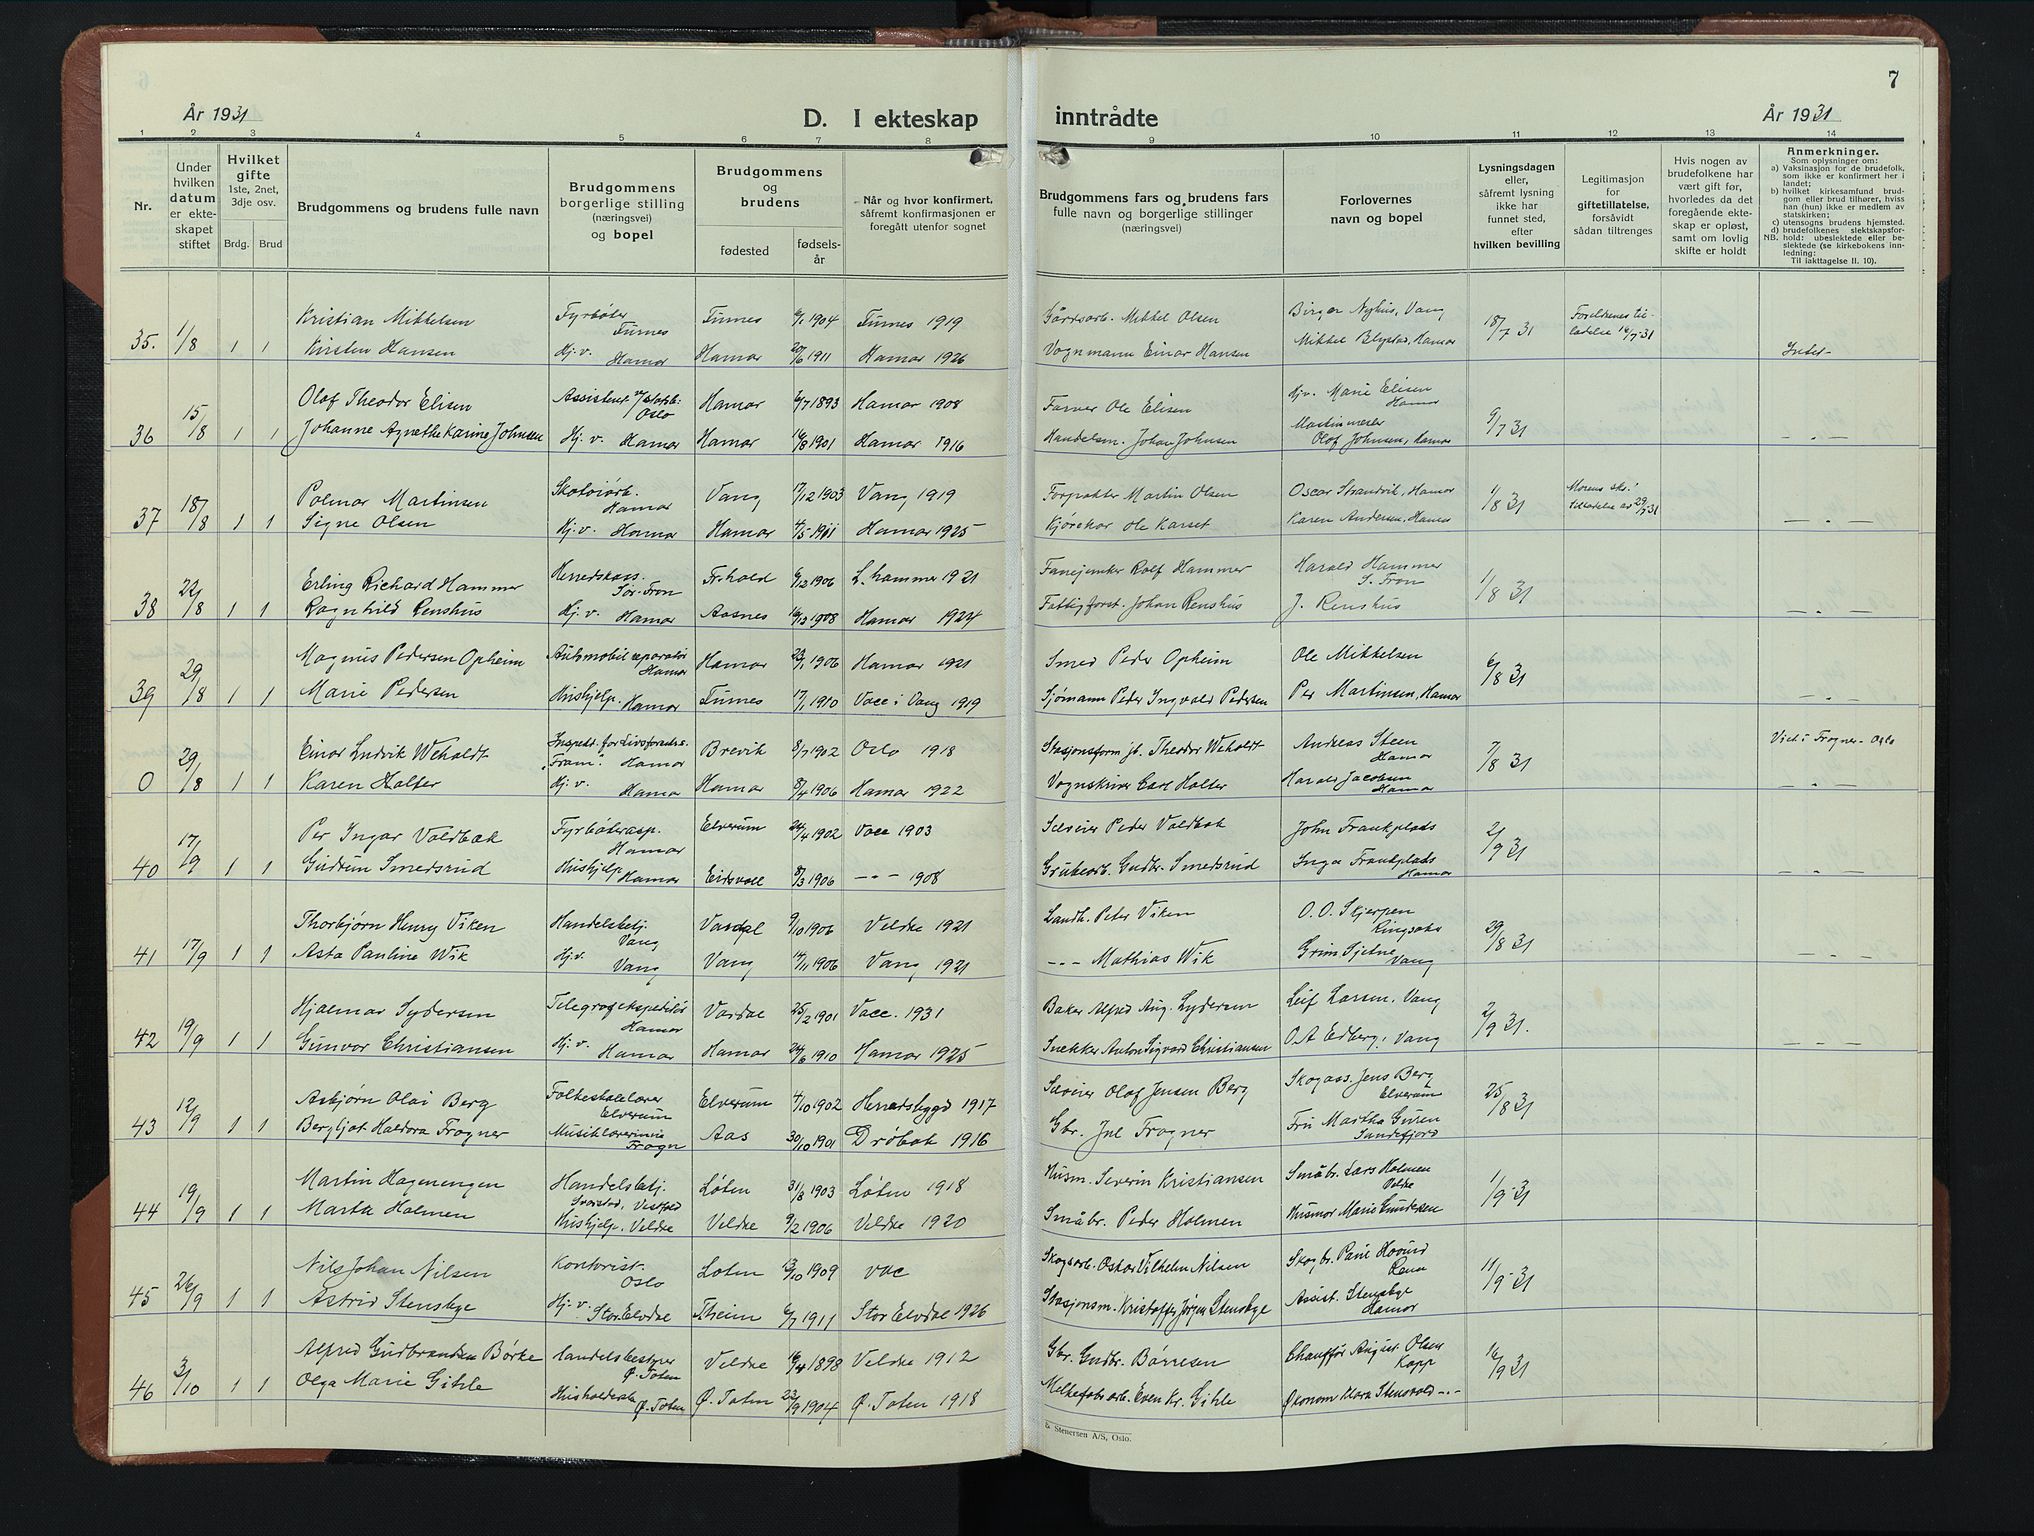 7
År 1931
D. I ekteskap
inntrådte
År 1931
1 2 3 4 5 6 7 8 9 10 11 12 13 14
Nr.
Under
hvilken
datum
er ekte-
skapet
stiftet
Hvilket
gifte
1ste, 2net,
3dje osv.
Brdg. Brud
Brudgommens og brudens fulle navn
Brudgommens
borgerlige stilling
(næringsvei)
og bopel
Brudgommens
og
brudens
fødested
fødsels-
år
Når og hvor konfirmert,
såfremt konfirmasjonen er
foregått utenfor sognet
Brudgommens fars og brudens fars
fulle navn og borgerlige stillinger
(næringsvei)
Forlovernes
navn og bopel
Lysningsdagen
eller,
såfremt lysning
ikke har
funnet sted,
efter
hvilken bevilling
Legitimasjon
for
giftetillatelse,
forsåvidt
sådan tiltrenges
Hvis nogen av
brudefolkene har
vært gift før,
hvorledes da det
foregående ekte-
skap er opløst,
samt om lovlig
skifte er holdt
Anmerkninger.
Som oplysninger om:
a) Vaksinasjon for de brudefolk,
som ikke er konfirmert her i
landet;
b) hvilket kirkesamfund brud-
gom eller brud tilhører, hviss
han (hun) ikke er medlem av
statskirken;
c) utensogns brudens hjemsted.
d) brudefolkenes slektskapsfor-
NB. hold: ubeslektede eller be-
slektede (se kirkebokens inn-
ledning:
Til iakttagelse II. 10).
Kristian Mikkelsen Fyrbøter Furnes Furnes 6/1 1904 Furnes 1919 Gårdsarb. Mikkel Olsen Birger Nyhus, Vang 18/7 31 Foreldrenes til-
ladelse 16/7-31
35. 1/8 1 1 Kirsten Hansen Hj.v. Hamar Hamar 27/6 1911 Hamar 1926 Vognmann Einar Hansen Mikkel Blystad, Hamar
Olaf Theodor Elisen Assistent v/statsb. Oslo Hamar 6/7 1893 Hamar 1908 Farver Ole Elisen Hj.v. Marie Elisen Hamar 9/7 31
36 15/8 1 1 Johanne Agnethe Karine Johnsen Hj.v. Hamar Hamar 16/8 1901 Hamar 1916 Handelsm. Johan Johnsen Olaf Johnsen, Hamar - " -
Palmar Martinsen Skotøiarb. Hamar Vang 17/12 1903 Vang 1919 Forpakter Martin Olsen Oscar Strandvik, Hamar 1/8 31 Morens skr.
tilladelse av 29/7 31
37 18/8 1 1 Signe Olsen Hj.v. Hamar Hamar 4/5 1911 Hamar 1925 Kjørekar Ole Karset Karen Andersen, Hamar - " -
Erling Richard Hammer Herredskass. Sør-Fron Fr.hald 6/12 1906 L.hammer 1921 Fanejunker Rolf Hammer Harald Hammer S. Fron 1/8 31
38 22/8 1 1 Ragnhild Renshus Hj.v. Hamar Aasnes 16/12 1908 Hamar 1924 Fattigforst. Johan Renshus J. Renshus - " -
Magnus Pedersen Opheim Automobilreparatør Hamar Hamar 23/1 1906 Hamar 1921 Smed Peder Opheim Ole Mikkelsen 6/8 31
39 29/8 1 1 Marie Pedersen Hushjelp. Hamar Furnes 17/1 1910 Vacc i Vang 1919 Sjømann Peder Ingvald Pedersen Per Martinsen, Hamar - " -
Einar Ludvik Weholdt Inspekt. for Livsforsikr.s. "Fram". Hamar Brevik 8/7 1902 Oslo 1918 Stasjonsform. Theodor Weholdt Andreas Steen Hamar 7/8 31 Viet i Frogner - Oslo
0 29/8 1 1 Karen Halter Hj.v. Hamar Hamar 8/4 1906 Hamar 1922 Vognskriver Carl Halter Harald Jacobsen Hamar - " -
Per Ingar Voldbak Fyrbøterasp. Hamar Elverum 24/4 1902 Vacc 1903 Selveier Peder Voldbak John Frankplads 2/9 31
40 17/9 1 1 Gudrun Smedsrud Hushjelp Hamar Eidsvoll 8/3 1906 - " - 1908 Grubearb. Gudbr. Smedsrud Inga Frankplads Hamar - " -
Thorbjørn Henry Viken Handelsbetj. Vang 9/10 1906 Veldre 1921 Landh. Peter Viken O.O. Skjerpen Ringsaker 29/8 31
41 17/9 1 1 Asta Pauline Wik Hj.v. Vang Vang 14/11 1906 Vang 1921 - " - Mathias Wik Grim Sjetne Vang - " -
Hjalmar Lydersen Telegrafekspeditør Hamar 25/2 1901 Vacc. 1931 Baker Alfred Aug. Lydersen Leif Larsen, Vang 2/9 31.
42 19/9 1 1 Gunvor Christiansen Hj.v. Hamar Hamar 24/6 1910 Hamar 1925 Snekker Anton Sigvard Christiansen O A Edberg, Vang - " -
Asbjørn Olai Berg Folkeskolelærer Elverum Elverum 4/10 1902 Heradsbygd 1917 Selveier Olaf Jensen Berg Skogass. Jens Berg Elverum 25/8 31
43 12/9 1 1 Bergljot Haldora Frogner Musiklærerinne Frogn Aas 30/10 1901 Drøbak 1916 Gbr. Jul Frogner Fru Martha Gu­ren Sandefjord
Martin Hagenengen Handelsbetj. Løten 31/8 1903 Løten 1918 Husm. Severin Kristiansen Småbr. Lars Holmen 1/9-31
44 19/9 1 1 Marta Holmen Hushjelp. Veldre Veldre 9/2 1906 Veldre 1920 Småbr. Peder Holmen Husmor Marie Gundersen
Nils Johan Nilsen Kontorist Oslo Løten 13/10 1909 vac Skogsarb. Oskar Vilhelm Nilsen Skogbr. Paul Hovind Rena 11/9-31
45 26/9 1 1 Astrid Stensbye Hj.v. Stor Elvdal Theim 6/7 1911 Stor Elvdal 1926 Stasjonsm. Kristoffer Jørgen Stensbye Assist. Stensbye Hamar
Alfred Gudbrandsen Børke Handelsbestyrer Ø. Toten Veldre 16/4 1898 Veldre 1912 Gbr. Gudbr. Børresen Chauffør August Olsen Kapp 16/9 31
46 3/10 1 1 Olga Marie Gihle Husholderske Ø. Toten Ø. Toten 23/9 1904 Ø. Toten 1918 Melkefabrarb. Even Kr. Gihle Økonom Klara Stensvold - " -
E. Stenersen A/S, Oslo.